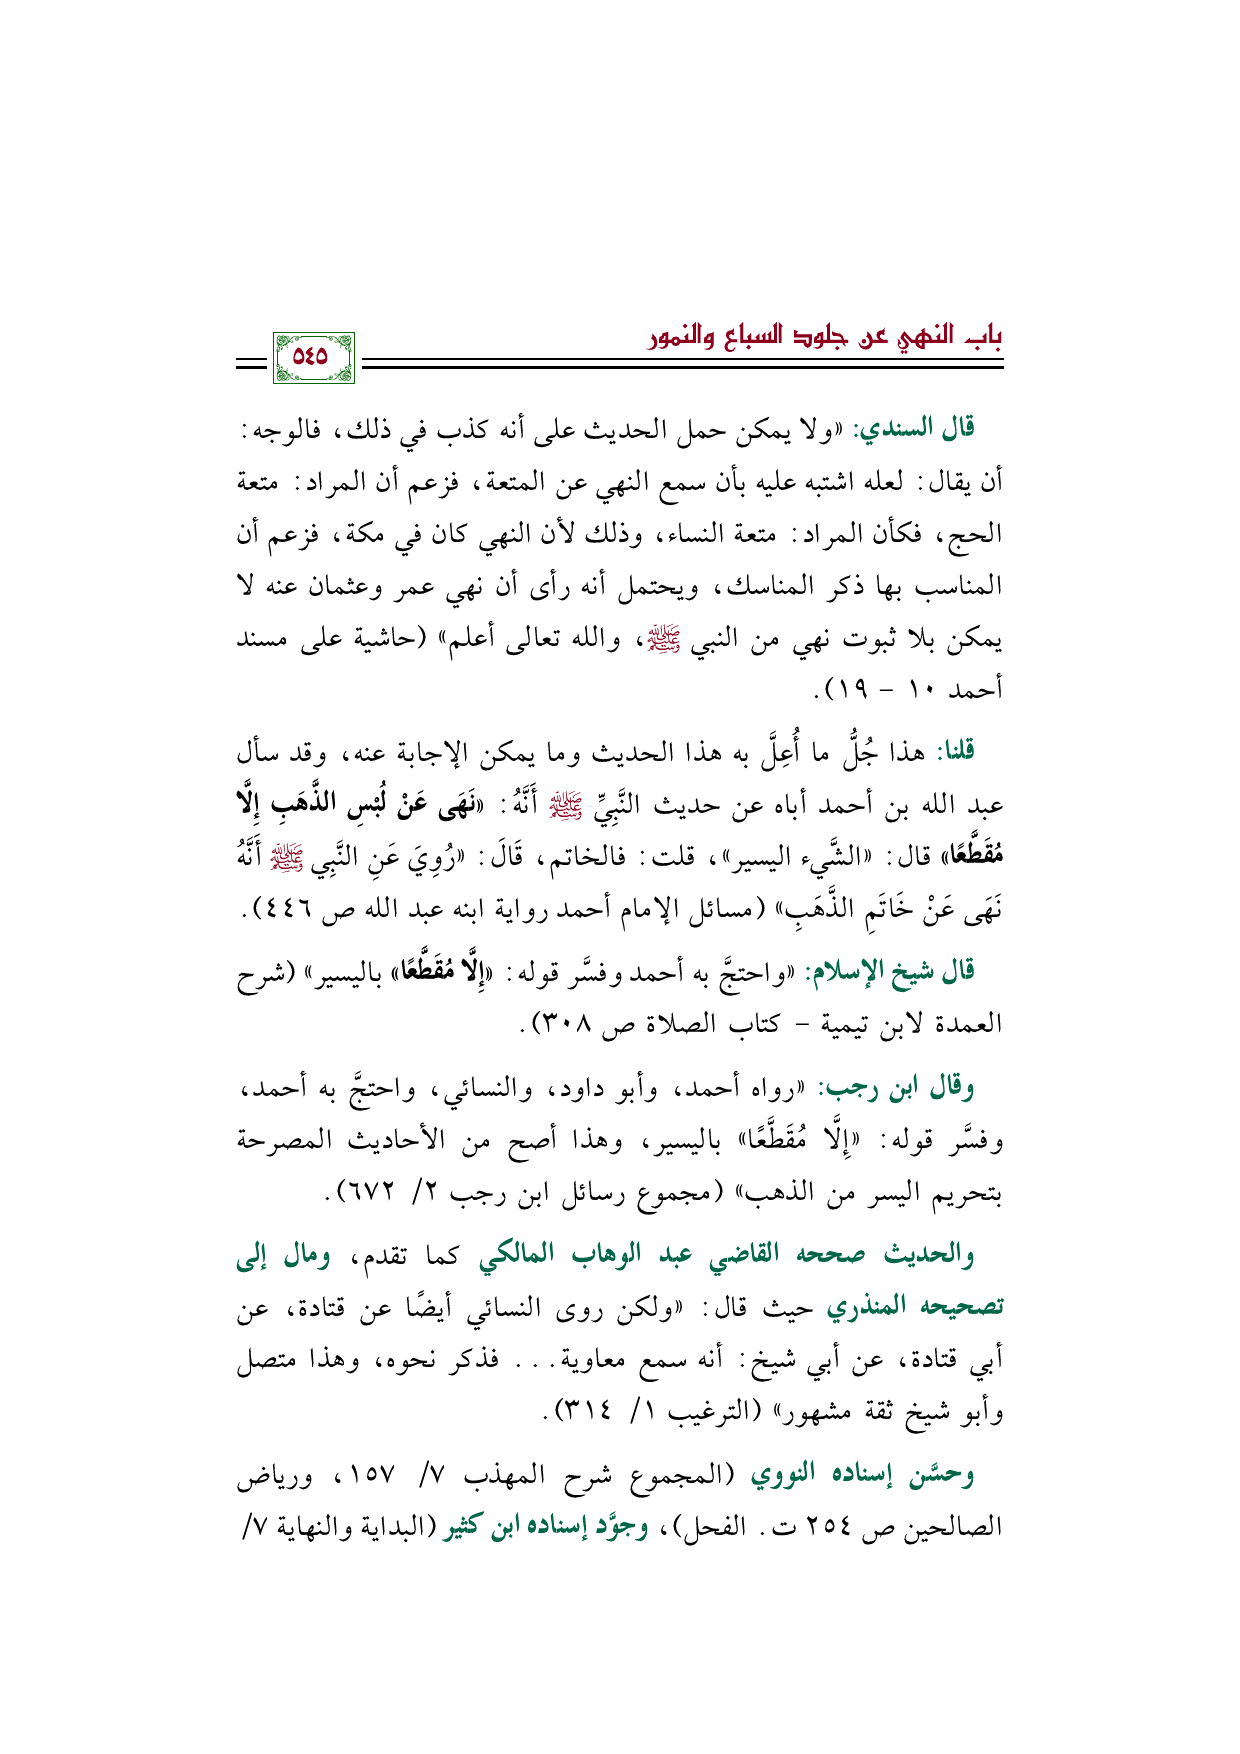 باب النهي عن جلود السباع والنمور
٥٤٥
قال السندي: «ولا يمكن حمل الحديث على أنه كذب في ذلك، فالوجه:
أن يقال: لعله اشتبه عليه بأن سمع النهي عن المتعة، فزعم أن المراد: متعة
الحج، فكأن المراد: متعة النساء، وذلك لأن النهي كان في مكة، فزعم أن
المناسب بها ذكر المناسك، ويحتمل أنه رأى أن نهي عمر وعثمان عنه لا
يمكن بلا ثبوت نهي من النبي ﷺ، والله تعالى أعلم» (حاشية على مسند
أحمد ١٠ - ١٩).
قلنا: هذا جُلُّ ما أُعِلَّ به هذا الحديث وما يمكن الإجابة عنه، وقد سأل
عبد الله بن أحمد أباه عن حديث النَّبِيِّ ﷺ أَنَّهُ: «نَهَى عَنْ لُبْسِ الذَّهَبِ إِلَّا
مُقَطَّعًا» قال: «الشَّيء اليسير»، قلت: فالخاتم، قَالَ: «رُوِيَ عَنِ النَّبِي ﷺ أَنَّهُ
نَهَى عَنْ خَاتَمِ الذَّهَبِ» (مسائل الإمام أحمد رواية ابنه عبد الله ص ٤٤٦).
قال شيخ الإسلام: «واحتجَّ به أحمد وفسَّر قوله: «إِلَّا مُقَطَّعًا» باليسير» (شرح
العمدة لابن تيمية - كتاب الصلاة ص ٣٠٨).
وقال ابن رجب: «رواه أحمد، وأبو داود، والنسائي، واحتجَّ به أحمد،
وفسَّر قوله: «إِلَّا مُقَطَّعًا» باليسير، وهذا أصح من الأحاديث المصرحة
بتحريم اليسر من الذهب» (مجموع رسائل ابن رجب ٢/ ٦٧٢).
والحديث صححه القاضي عبد الوهاب المالكي كما تقدم، ومال إلى
تصحيحه المنذري حيث قال: «ولكن روى النسائي أيضًا عن قتادة، عن
أبي قتادة، عن أبي شيخ: أنه سمع معاوية... فذكر نحوه، وهذا متصل
وأبو شيخ ثقة مشهور» (الترغيب ١/ ٣١٤).
وحسَّن إسناده النووي (المجموع شرح المهذب ٧/ ١٥٧، ورياض
الصالحين ص ٢٥٤ ت. الفحل)، وجوَّد إسناده ابن كثير (البداية والنهاية ٧/